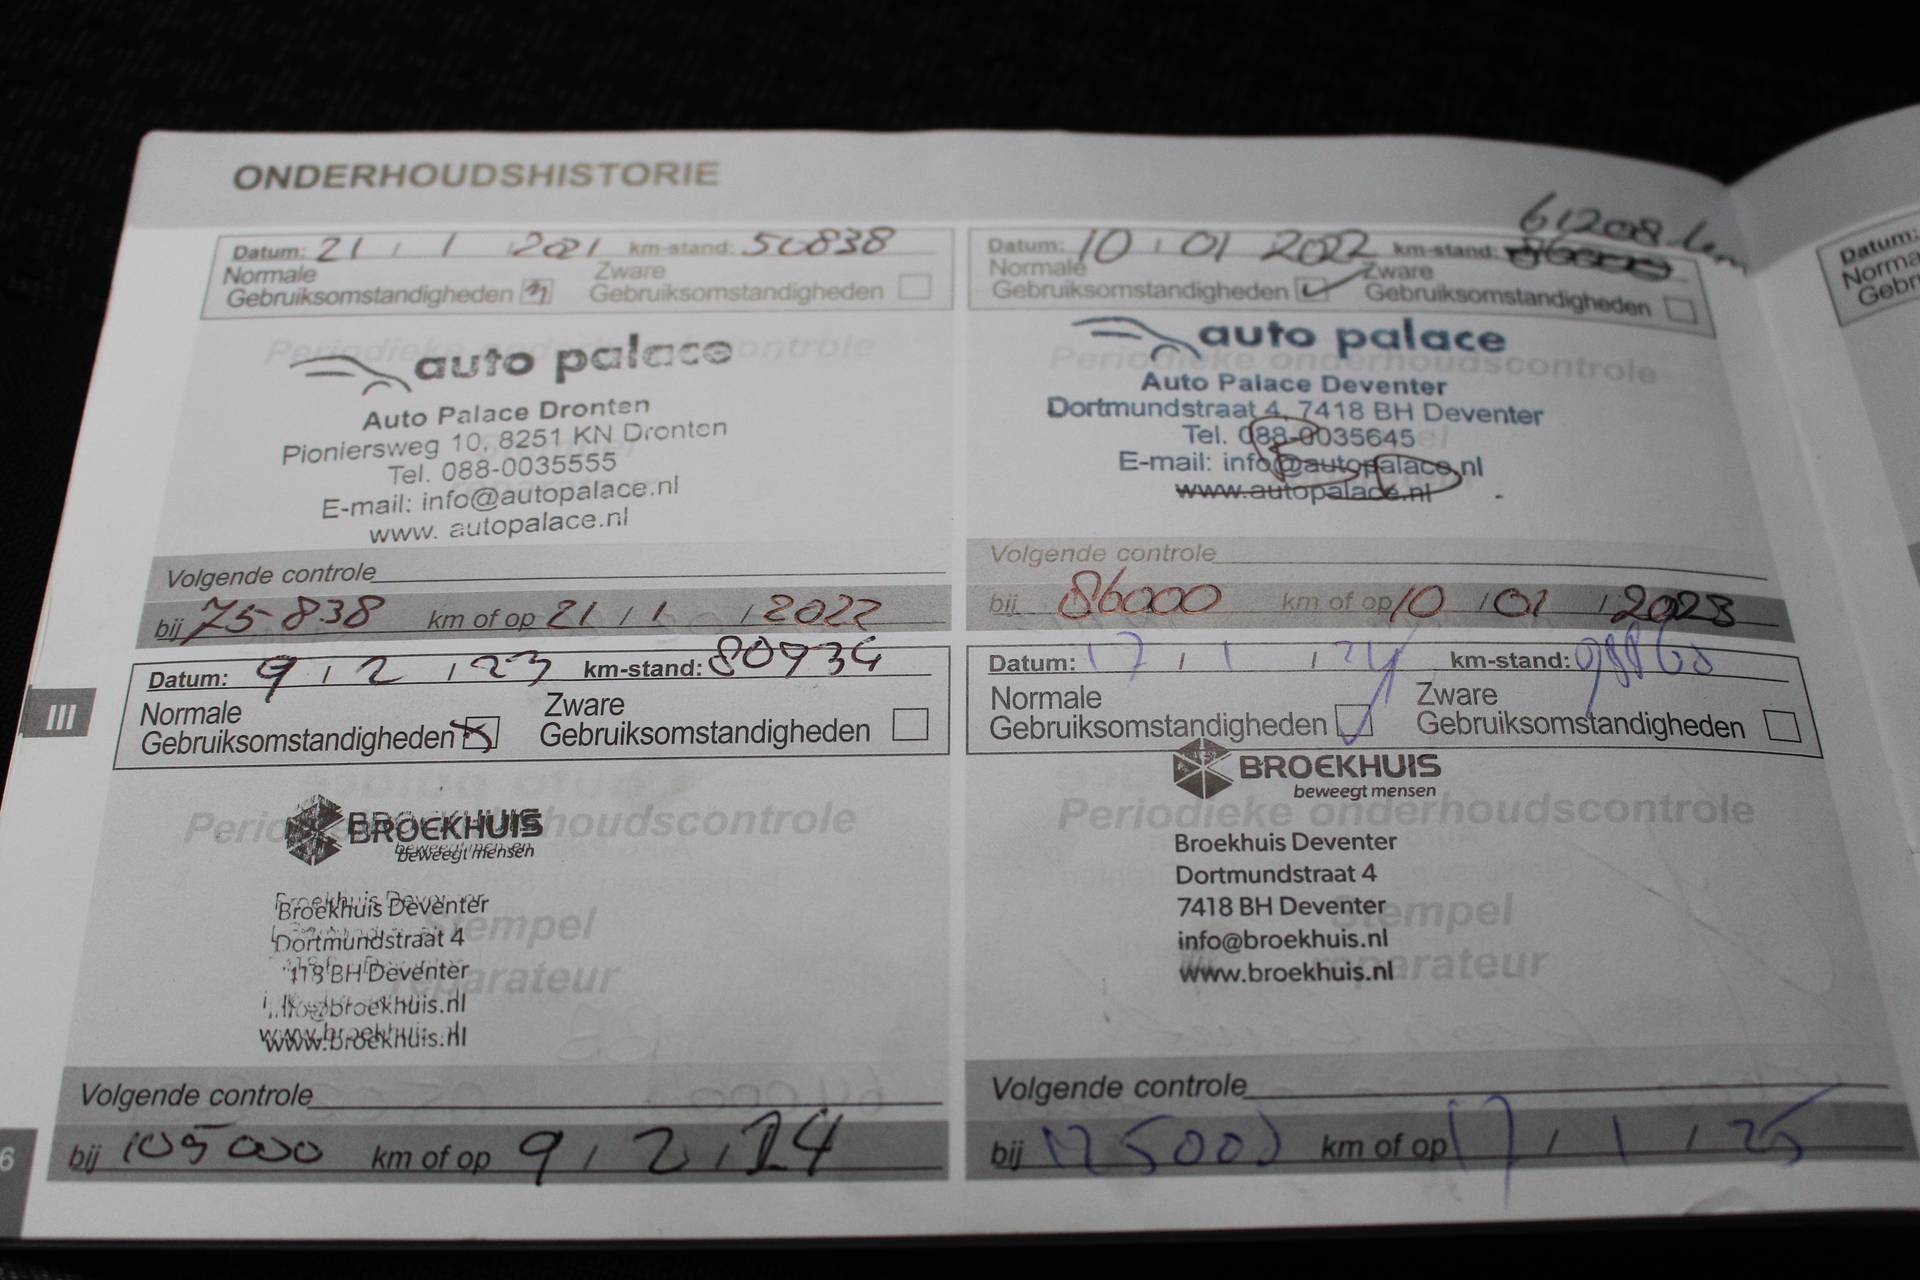 ONDERHOUDSHISTORIE
Datum: 21 / 1 / 2021 km-stand: 50838
Normale Gebruiksomstandigheden
Zware Gebruiksomstandigheden
auto palace
Auto Palace Dronten
Pioniersweg 10, 8251 KN Dronten
Tel. 088-0035555
E-mail: info@autopalace.nl
www. autopalace.nl
Volgende controle
bij 75838 km of op 21 / 1 / 2022
61208 km
Datum: 10 / 01 2022 km-stand: 86000
Normale Gebruiksomstandigheden
Zware Gebruiksomstandigheden
auto palace
Periodieke onderhoudscontrole
Auto Palace Deventer
Dortmundstraat 4, 7418 BH Deventer
Tel. 088-0035645
E-mail: info@autopalace.nl
www.autopalace.nl
Volgende controle
bij 86000 km of op 10 / 01 / 2023
III
Datum: 9 / 2 / 23 km-stand: 80934
Normale
Gebruiksomstandigheden
Zware
Gebruiksomstandigheden
BROEKHUIS
beweegt mensen
Periodieke onderhoudscontrole
Broekhuis Deventer
Dortmundstraat 4
7418 BH Deventer
info@broekhuis.nl
www.broekhuis.nl
Stempel
reparateur
Volgende controle
bij 105000 km of op 9 / 2 / 24
Datum: 17 / 1 / 24 km-stand: 98860
Normale
Gebruiksomstandigheden
Zware
Gebruiksomstandigheden
BROEKHUIS
beweegt mensen
Periodieke onderhoudscontrole
Broekhuis Deventer
Dortmundstraat 4
7418 BH Deventer
info@broekhuis.nl
www.broekhuis.nl
Stempel
reparateur
Volgende controle
bij 125000 km of op 17 / 1 / 25
6
Datum:
Norma
Gebr